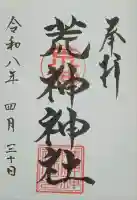 奉拝
荒神神社
令和八年 四月 三十日